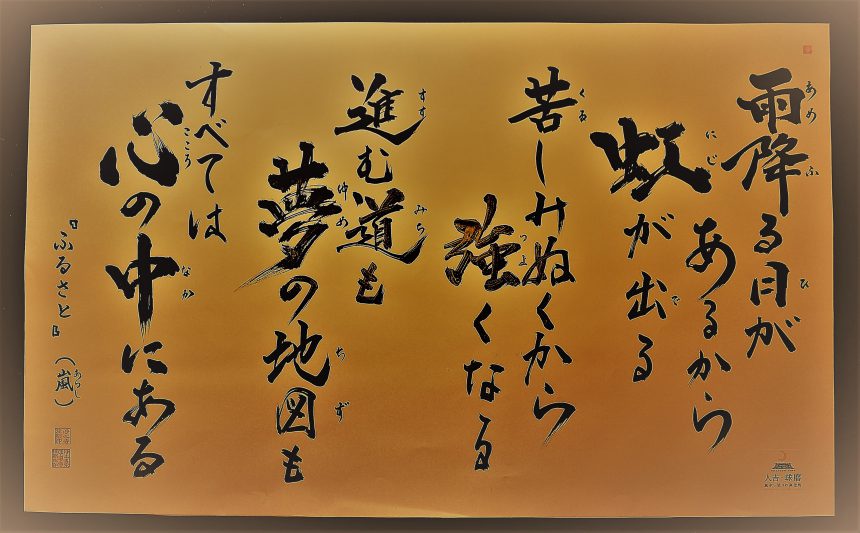 雨降る日が
あるから
虹が出る
苦しみぬくから
強くなる
進む道も
夢の地図も
すべては
心の中にある
『ふるさと』(嵐)
人吉 球磨